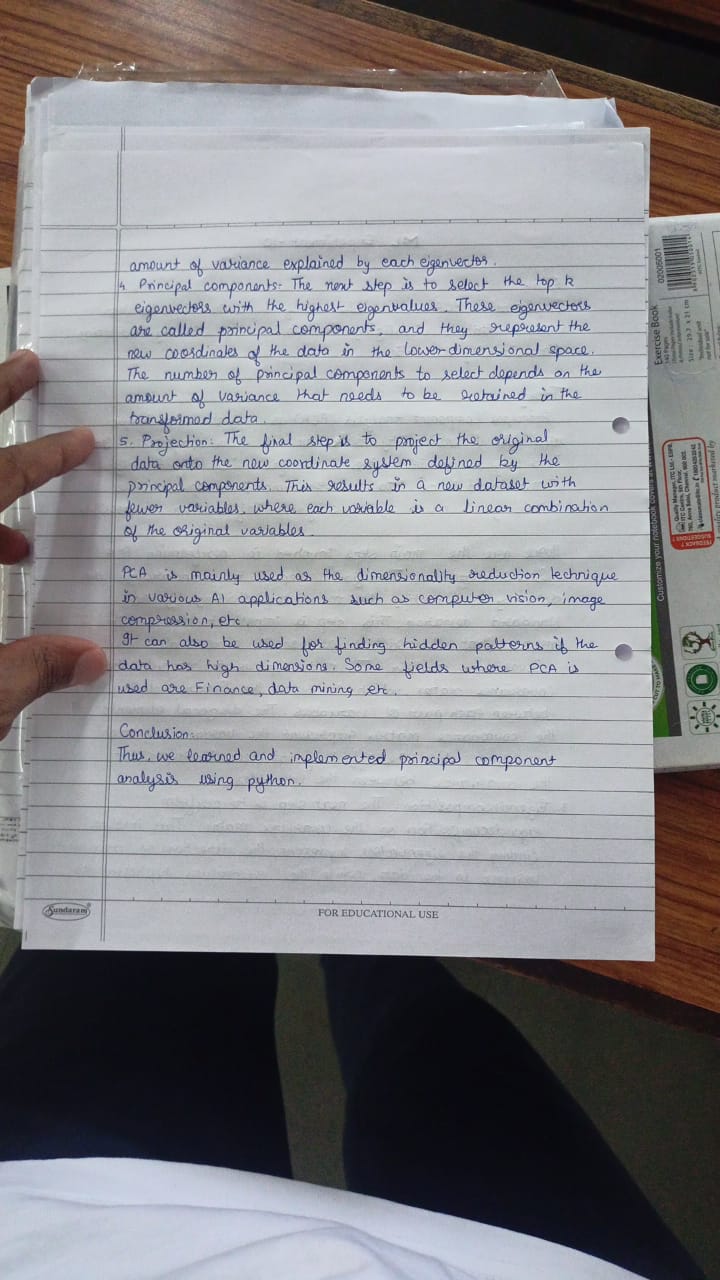 amount of variance explained by each eigenvector.
4. Principal components- The next step is to select the top k
eigenvectors with the highest eigenvalues. These eigenvectors
are called principal components, and they represent the
new coordinates of the data in the lower dimensional space.
The number of principal components to select depends on the
amount of variance that needs to be retained in the
transformed data.
5. Projection: The final step is to project the original
data onto the new coordinate system defined by the
principal components. This results in a new dataset with
fewer variables, where each variable is a linear combination
of the original variables.
PCA is mainly used as the dimensionality reduction technique
in various AI applications such as computer vision, image
compression, etc.
It can also be used for finding hidden patterns if the
data has high dimensions. Some fields where PCA is
used are Finance, data mining etc.
Conclusion:
Thus, we learned and implemented principal component
analysis using python.
Sundaram
FOR EDUCATIONAL USE
02005001
Exercise Book
Size: 29.7 x 21 cm
Customize your notebook